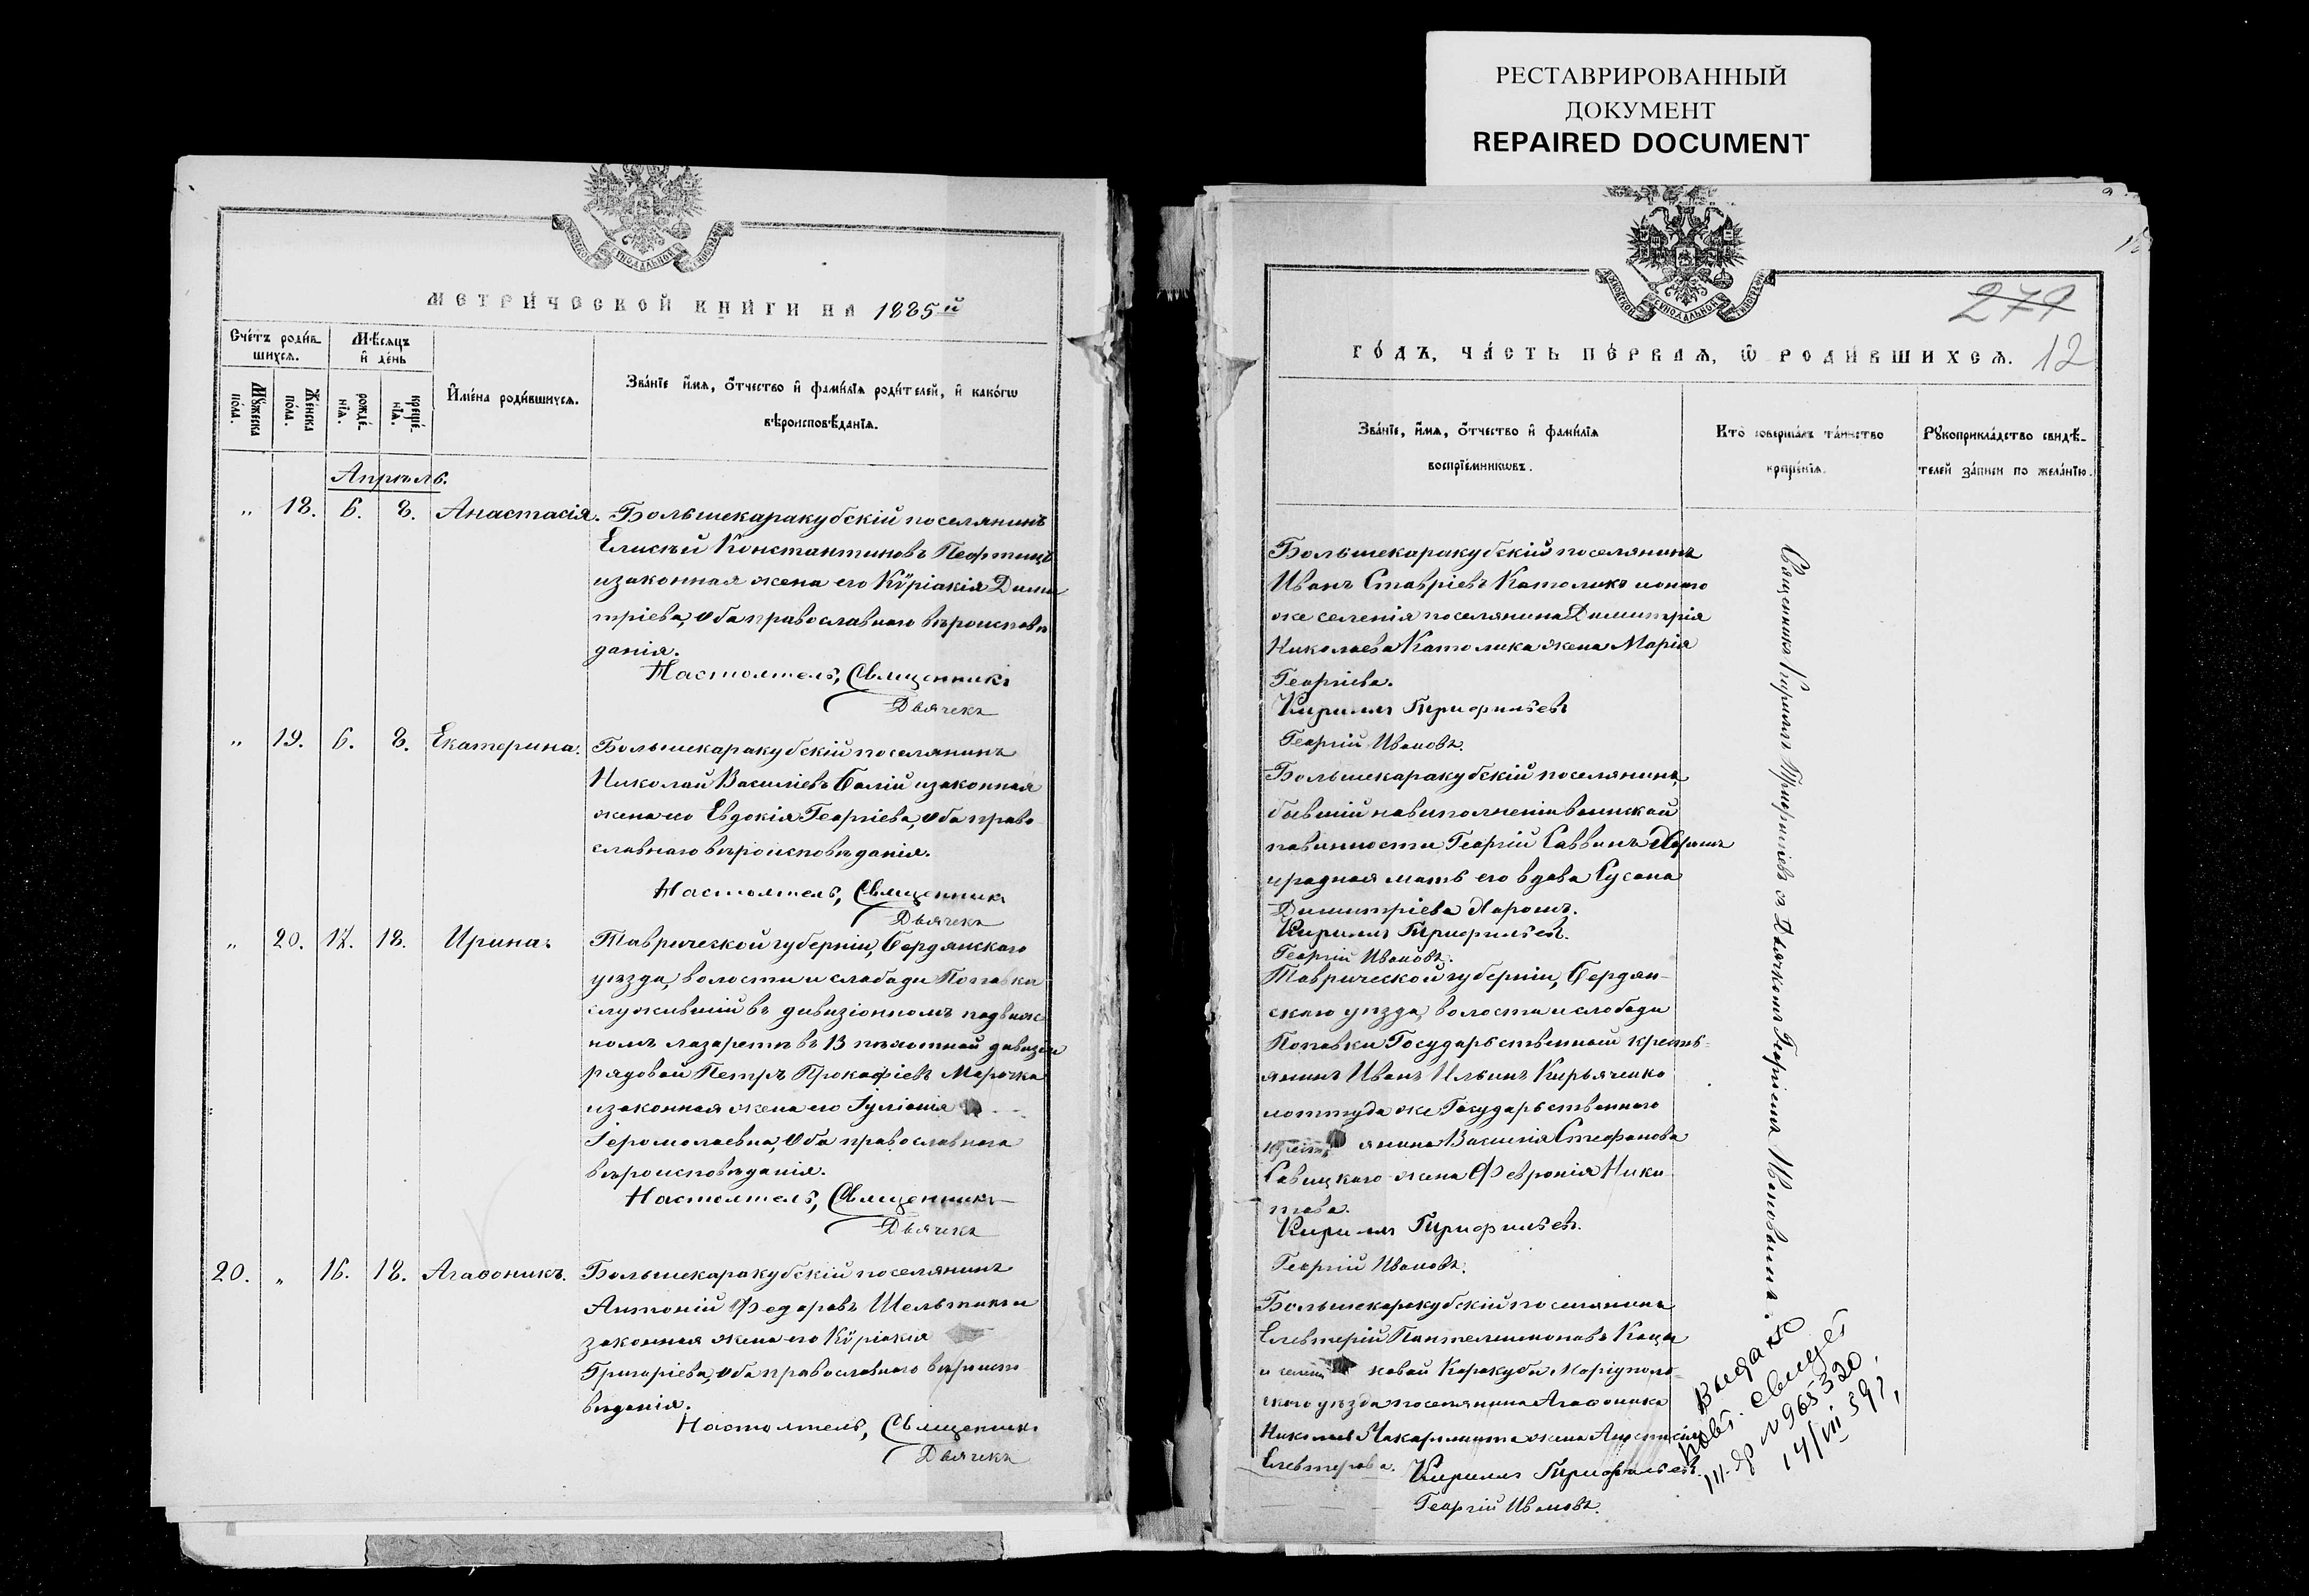 РЕСТАВРИРОВАННЫЙ
ДОКУМЕНТ
REPAIRED DOCUMENT
МЕТРИЧЕСКОЙ КНИГИ НА 1885й
Счетъ родив-
шихся.
Мѣсяцъ
и день
Мужеска
пола.
Женска
пола.
рожде-
нія.
креще-
нія.
Имена родившихся.
Званіе имя, отчество и фамилія родителей, и какогѡ
вѣроисповѣданія.
Апрѣль.
„ 18. 6. 8. Анастасія. Большекаракубскій поселянинъ
Елисѣй Константиновъ
и законная жена его Кѵріакія Дими
тріева, оба православнаго вѣроисповѣ
данія.
Настоятель, Священникъ
Дьячекъ
„ 19. 6. 8. Екатерина. Большекаракубскій поселянинъ
Николай Василіевъ Балій и законная
жена его Евдокія Георгіева, оба право
славнаго вѣроисповѣданія.
Настоятель, Священникъ
Дьячекъ
„ 20. 18. Ирина. Таврической губерніи, Бердянскаго
уѣзда, волости и слободи Поповки
служившій въ дивизіонномъ подвиж
номъ лазаретѣ въ 13 пѣхотной дивизіи
рядовой Петръ Прокофіевъ Марочка
и законная жена его Іуліанія
Іеромолаевна, оба православнаго
вѣроисповѣданія.
Настоятель, Священникъ
Дьячекъ
20. „ 16. 18. Агаѳоникъ. Большекаракубскій поселянинъ
Антоній Федоровъ Шельтикъ и
законная жена его Кѵріакія
Григоріева, оба православнаго вѣроиспо
вѣданія.
Настоятель, Священникъ
Дьячекъ
279
12
ГОДЪ, ЧАСТЬ ПЕРВАЯ, Ѡ РОДИВШИХСЯ.
Званіе, имя, отчество и фамилія
воспріемникѡвъ.
Кто совершалъ таинство
крещенія.
Рукоприкладство свидѣ-
телей записи по желанію.
Большекаракубскій поселянинъ
Иванъ Ставріевъ Католикъ и онаго
же селенія поселянина Димитрія
Николаева Католика жена Марія
Георгіева.
Кириллъ Трифильевъ
Георгій Ивановъ.
Большекаракубскій поселянинъ,
бывшій на выполненіи воинской
повинности Георгій Саввинъ
и родная мать его вдова Сусана
Димитріева Харошъ.
Кириллъ Трифильевъ.
Георгій Ивановъ.
Таврической губерніи, Бердян-
скаго уѣзда, волости и слободи
Поповки Государственный кресть-
янинъ Иванъ Ильинъ Кирьяченко
и оттуда же Государственнаго
крестьянина Василія Стефанова
Савицкаго жена Февронія Ники
това.
Кириллъ Трифильевъ.
Георгій Ивановъ.
Большекаракубскій поселянинъ
Елевтерій Пантелеимоновъ Коци
и селенія новой Каракубы Маріуполь-
скаго уѣзда поселянина Агаѳоника
жена Анастасія
Елевтерова. Кириллъ Трифильевъ.
Георгій Ивановъ.
Священникъ Кириллъ Трифильевъ съ Дьячкомъ Георгіемъ Ивановымъ.
Выдано
повт. свидет
№ 965320
14/VII 59г,